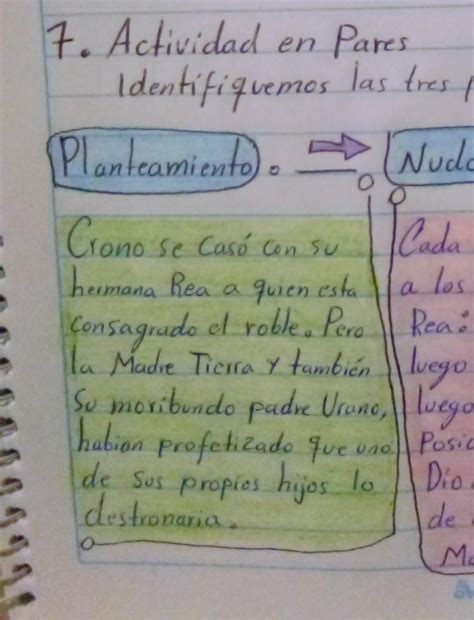 7. Actividad en Pares
Identifiquemos las tres
Planteamiento.
Crono se casó con su
hermana Rea a quien esta
consagrado el roble. Pero
la Madre Tierra y también
su moribundo padre Urano,
habian profetizado que uno
de sus propios hijos lo
destronaria.
Nudo
Cada
a los
Rea:
luego
luego
Posid
Dio
de
Ma